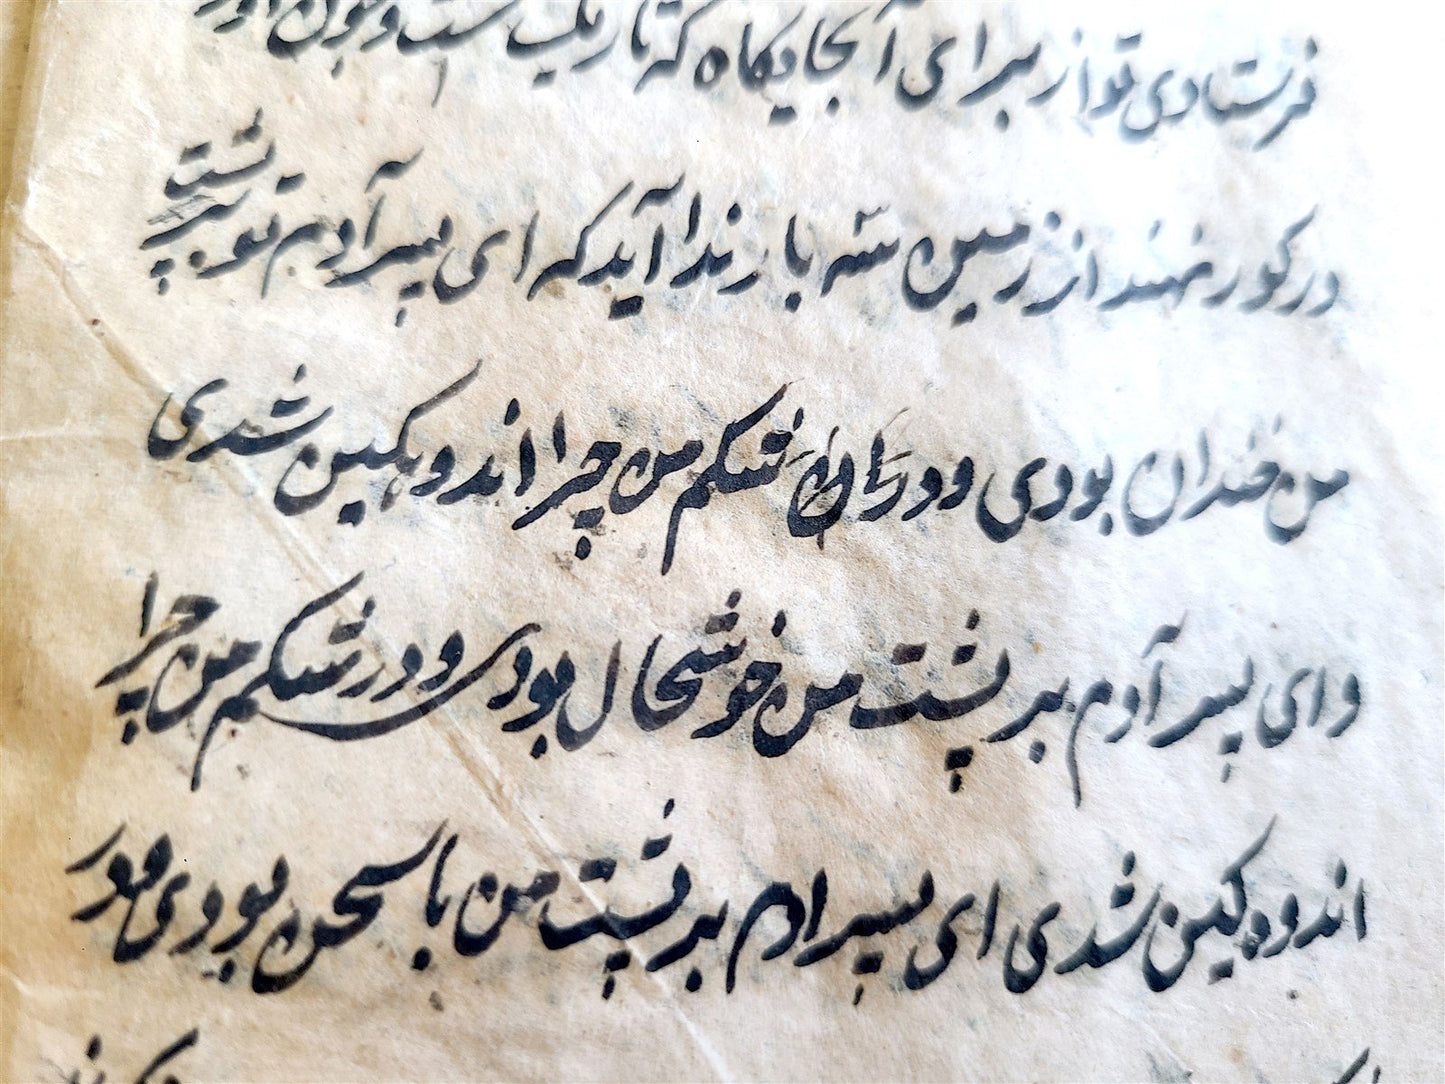 فرستادی تو از برای آنجایکاه که تاریک است و چون او را
در کور نهند از زمین سه بار ندا آید که ای پسر آدم تو بر پشت
من خندان بودی و در شکم من چرا اندوهکین شدی
و ای پسر آدم بر پشت من خوشحال بودی و در شکم من چرا
اندوه کین شدی ای پسر ادم بر پشت من با سخن بودی و در